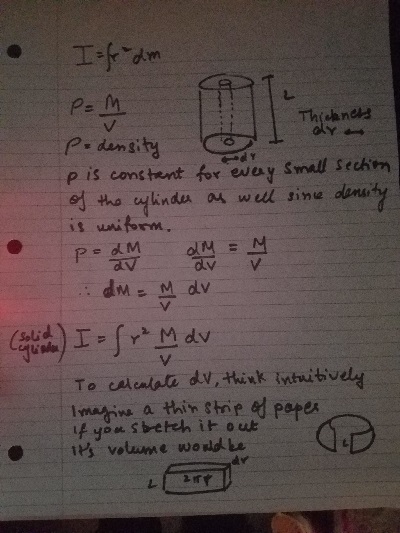 I = ∫r²dm
ρ = M/V
L
Thickness
dr ↔
↔ dr
ρ = density
ρ is constant for every small section
of the cylinder as well since density
is uniform.
ρ = dM/dV   dM/dV = M/V
∴ dM = M/V dV
(solid cylinder) I = ∫ r² M/V dV
To calculate dV, think intuitively
Imagine a thin strip of paper
if you stretch it out
it's volume would be
L
dr
L 2πr